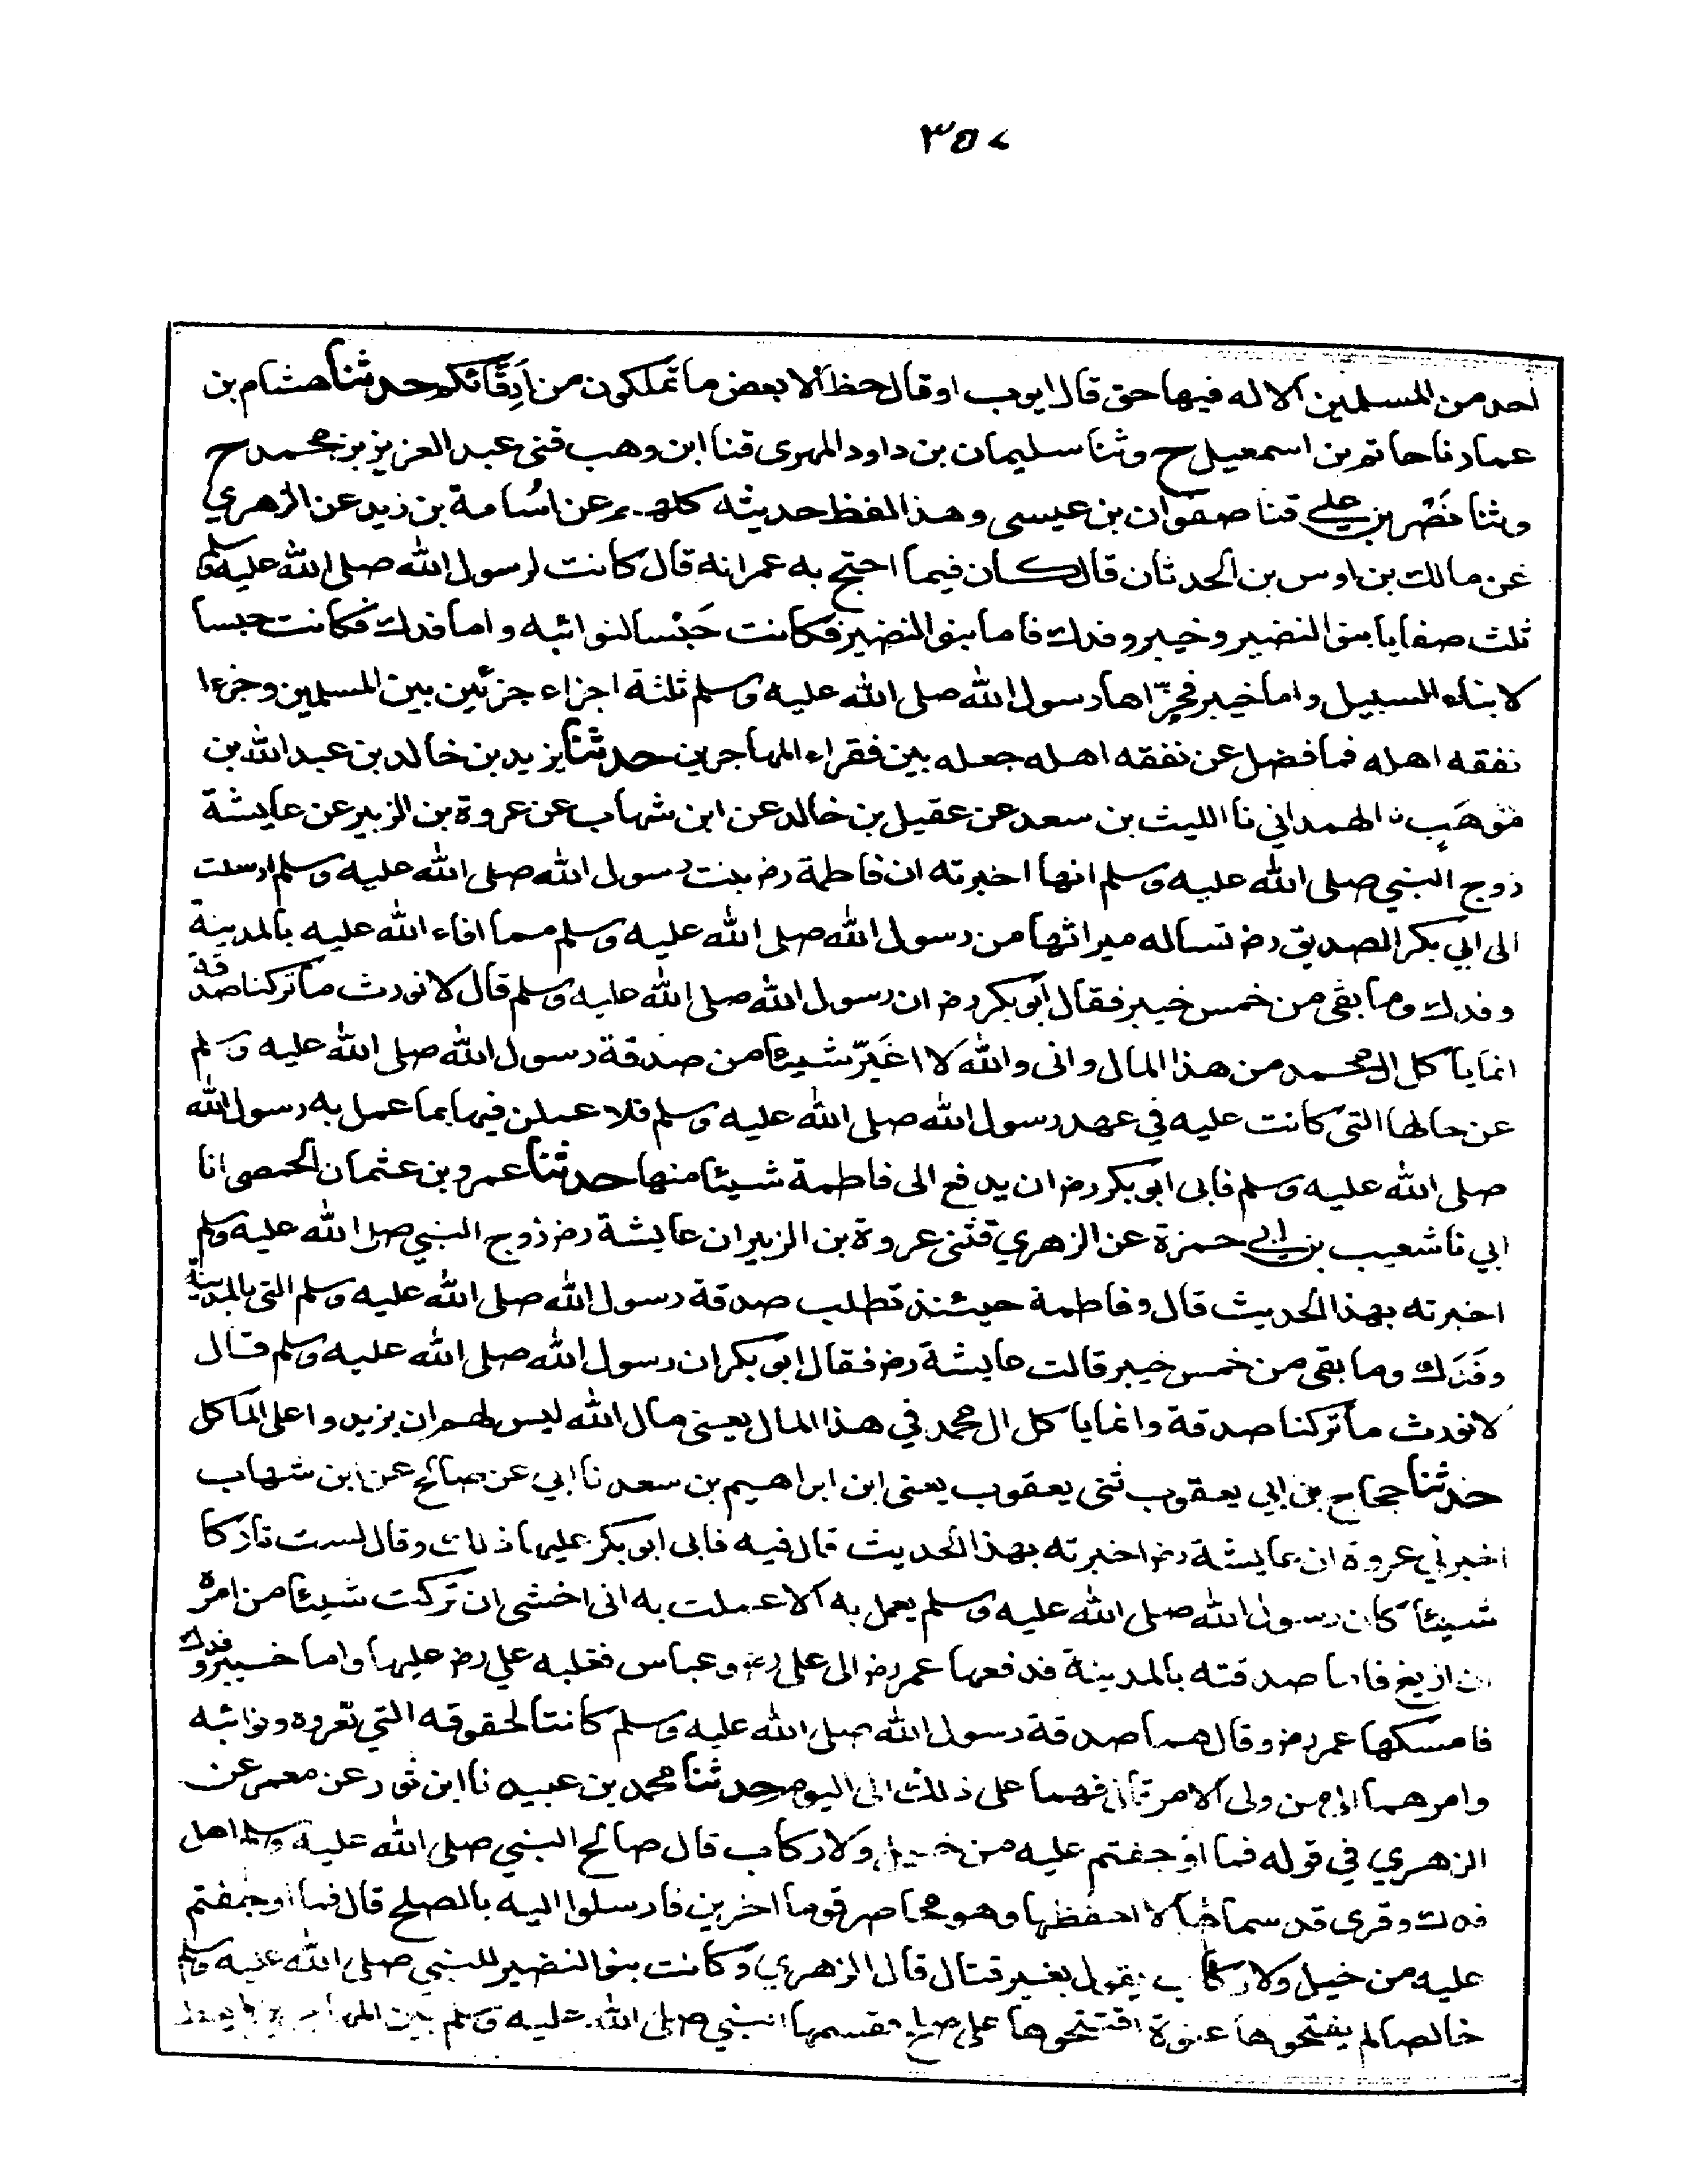 ٣٥٧
احد من المسلمين الا له فيها حق قال ايوب او قال حظ الا بعض ما تملكون من اَرِقَّائكم حدثنا هشام بن
عمار نا حاتم بن اسمعيل ح وثنا سليمان بن داود المهرى قنا ابن وهب قثنى عبد العزيز بن محمد ح
وثنا نَصْر بن علي قنا صفوان بن عيسى وهذا لفظ حديثه كلهم عن اسُامة بن زيد عن الزهري
عن مالك بن اوس بن الحدثان قال كان فيما احتج به عمر انه قال كانت لرسول الله صلى الله عليه وسلم
ثلث صفايا بنو النضير وخيبر وفدك فاما بنو النضير فكانت حَبْسا لنوائبه واما فدك فكانت حبسا
لابناء السبيل واما خيبر فجزّاها رسول الله صلى الله عليه وسلم ثلثة اجزاء جزئين بين المسلمين وجزءا
نفقه اهله فما فضل عن نفقه اهله جعله بين فقراء المهاجرين حدثنا يزيد بن خالد بن عبد الله بن
مَوهَبٍ الهمداني نا الليث بن سعد عن عقيل بن خالد عن ابن شهاب عن عروة بن الزبير عن عايشة
زوج النبي صلى الله عليه وسلم انها اخبرته ان فاطمة رض بنت رسول الله صلى الله عليه وسلم ارسلت
الى ابي بكر الصديق رض تساله ميراثها من رسول الله صلى الله عليه وسلم مما افاء الله عليه بالمدينة
وفدك وما بقى من خمس خيبر فقال ابو بكر رض ان رسول الله صلى الله عليه وسلم قال لا نورث ما تركنا صدقة
انما ياكل ال محمد من هذا المال وانى والله لا اغَيّر شيئا من صدقة رسول الله صلى الله عليه وسلم
عن حالها التى كانت عليه في عهد رسول الله صلى الله عليه وسلم فلاعملن فيها بما عمل به رسول الله
صلى الله عليه وسلم فابى ابو بكر رض ان يدفع الى فاطمة شيئا منها حدثنا عمرو بن عثمان الحمصى انا
ابي نا شعيب بن ابي حمزة عن الزهري قثنى عروة بن الزبير ان عايشة رض زوج النبي صلى الله عليه وسلم
اخبرته بهذا الحديث قال وفاطمة حينئذ تطلب صدقة رسول الله صلى الله عليه وسلم التى بالمدينة
وفَدَك وما بقى من خمس خيبر قالت عايشة رض فقال ابو بكر ان رسول الله صلى الله عليه وسلم قال
لا نورث ما تركنا صدقة وانما ياكل ال محمد في هذا المال يعنى مال الله ليس لهم ان يزيدوا على الماكل
حدثنا حجاج بن ابي يعقوب ثنى يعقوب يعنى ابن ابراهيم بن سعد نا ابي عن صالح عن ابن شهاب
اخبرني عروة ان عايشة رض اخبرته بهذا الحديث قال فيه فابى ابو بكر عليها ذلك وقال لست تاركا
شيئا كان رسول الله صلى الله عليه وسلم يعمل به الا عملت به انى اخشى ان تركت شيئا من امره
ان ازيغ فاما صدقته بالمدينة فدفعها عمر رض الى على رض وعباس فغلبه علي رض عليها واما خيبر وفدك
فامسكها عمر رض وقال هما صدقة رسول الله صلى الله عليه وسلم كانتا لحقوقه التي تعروه ونوائبه
وامرهما الى من ولى الامر قال فهما على ذلك الى اليوم حدثنا محمد بن عبيد نا ابن ثور عن معمر عن
الزهري في قوله فما اوجفتم عليه من خيل ولا ركاب قال صالح النبي صلى الله عليه وسلم اهل
فدك وقرى قد سماها لا احفظها وهو محاصر قوما اخرين فارسلوا اليه بالصلح قال فما اوجفتم
عليه من خيل ولا ركاب يقول بغير قتال قال الزهري وكانت بنو النضير للنبي صلى الله عليه وسلم
خالصا لم يفتحوها عنوة افتتحوها على صلح فقسمها النبي صلى الله عليه وسلم بين